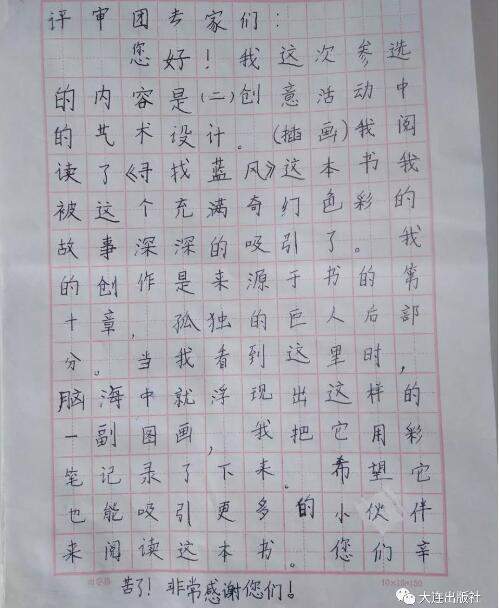 评审团专家们：
您好！我这次参选
的内容是（二）创意活动中
的艺术设计。（插画）我阅
读了《寻找蓝风》这本书我
被这个充满奇幻色彩的
故事深深的吸引了。我
的创作是来源于书的第
十章，孤独的巨人后部
分。当我看到这里时，
脑海中就浮现出这样的
一副图画，我把它用彩
笔记录了下来。希望它
也能吸引更多的小伙伴
来阅读这本书。您们辛
苦了！非常感谢您们！
10×15=150
大连出版社